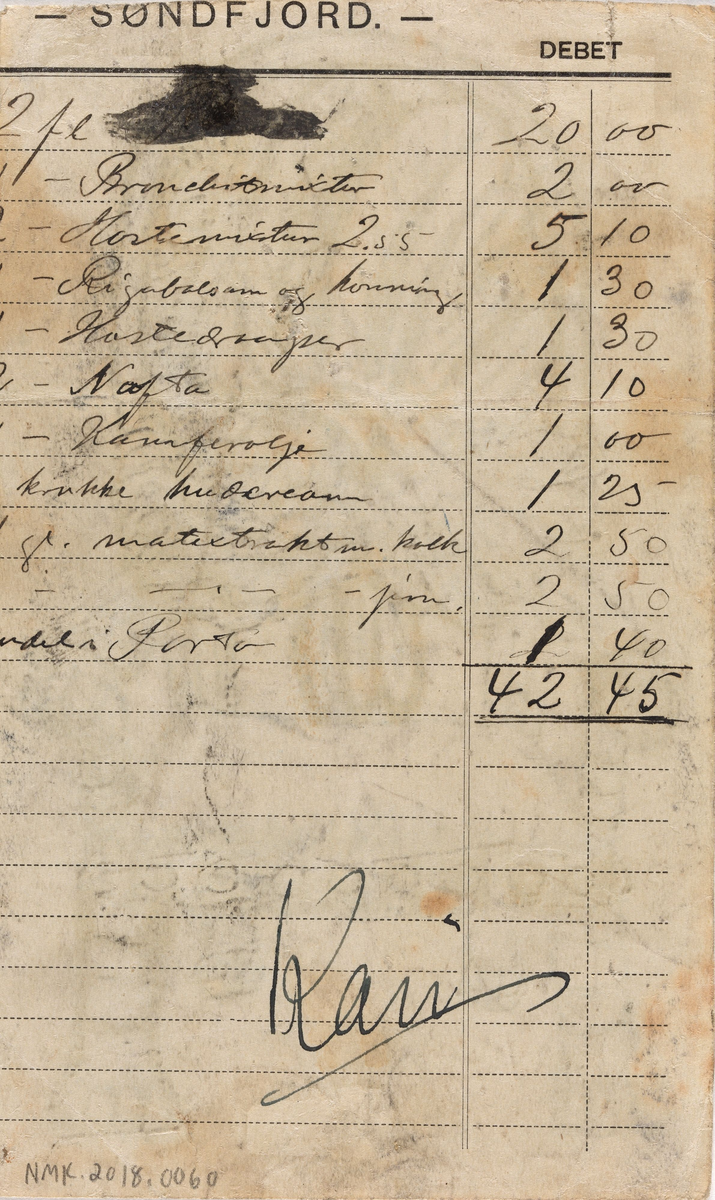 — SØNDFJORD. —
DEBET
2 fl 20 00
1 - Bronchitmixtur 2 00
2 - Hostemixtur 2.55 5 10
1 - Rigabalsam og honning 1 30
1 - Hostedraaper 1 30
2 - Nafta 4 10
1 - Kamferolje 1 00
krukke hudcream 1 25
gl. maltextrakt m. kalk 2 50
- — " — - jern. 2 50
andel i Porto 1 40
42 45
Kari
NMK.2018.0060